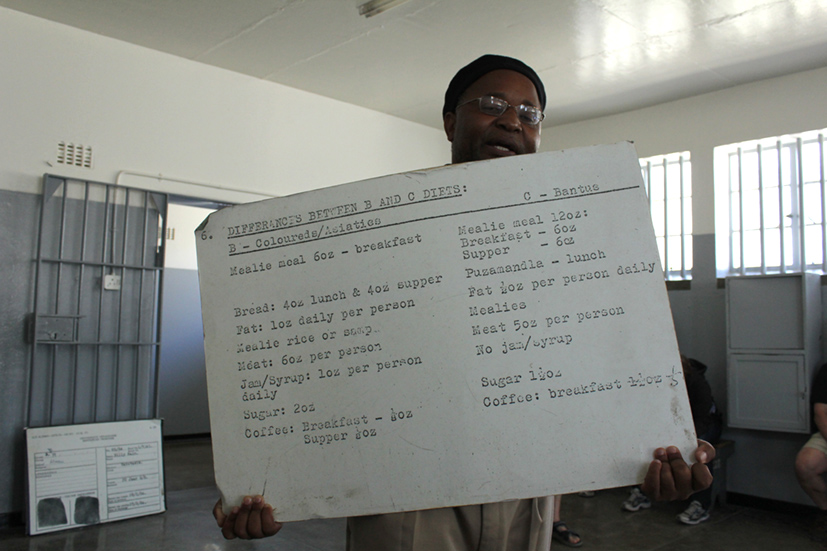 6. DIFFERANCES BETWEEN B AND C DIETS:
B - Coloureds/Asiatics
Mealie meal 6oz - breakfast
Bread: 4oz lunch & 4oz supper
Fat: 1oz daily per person
Mealie rice or samp
Meat: 6oz per person
Jam/Syrup: 1oz per person
daily
Sugar: 2oz
Coffee: Breakfast - ½oz
Supper ½oz
C - Bantus
Mealie meal 12oz:
Breakfast - 6oz
Supper - 6oz
Puzamandla - lunch
Fat ½oz per person daily
Mealies
Meat 5oz per person
No jam/syrup
Sugar 1½oz
Coffee: breakfast